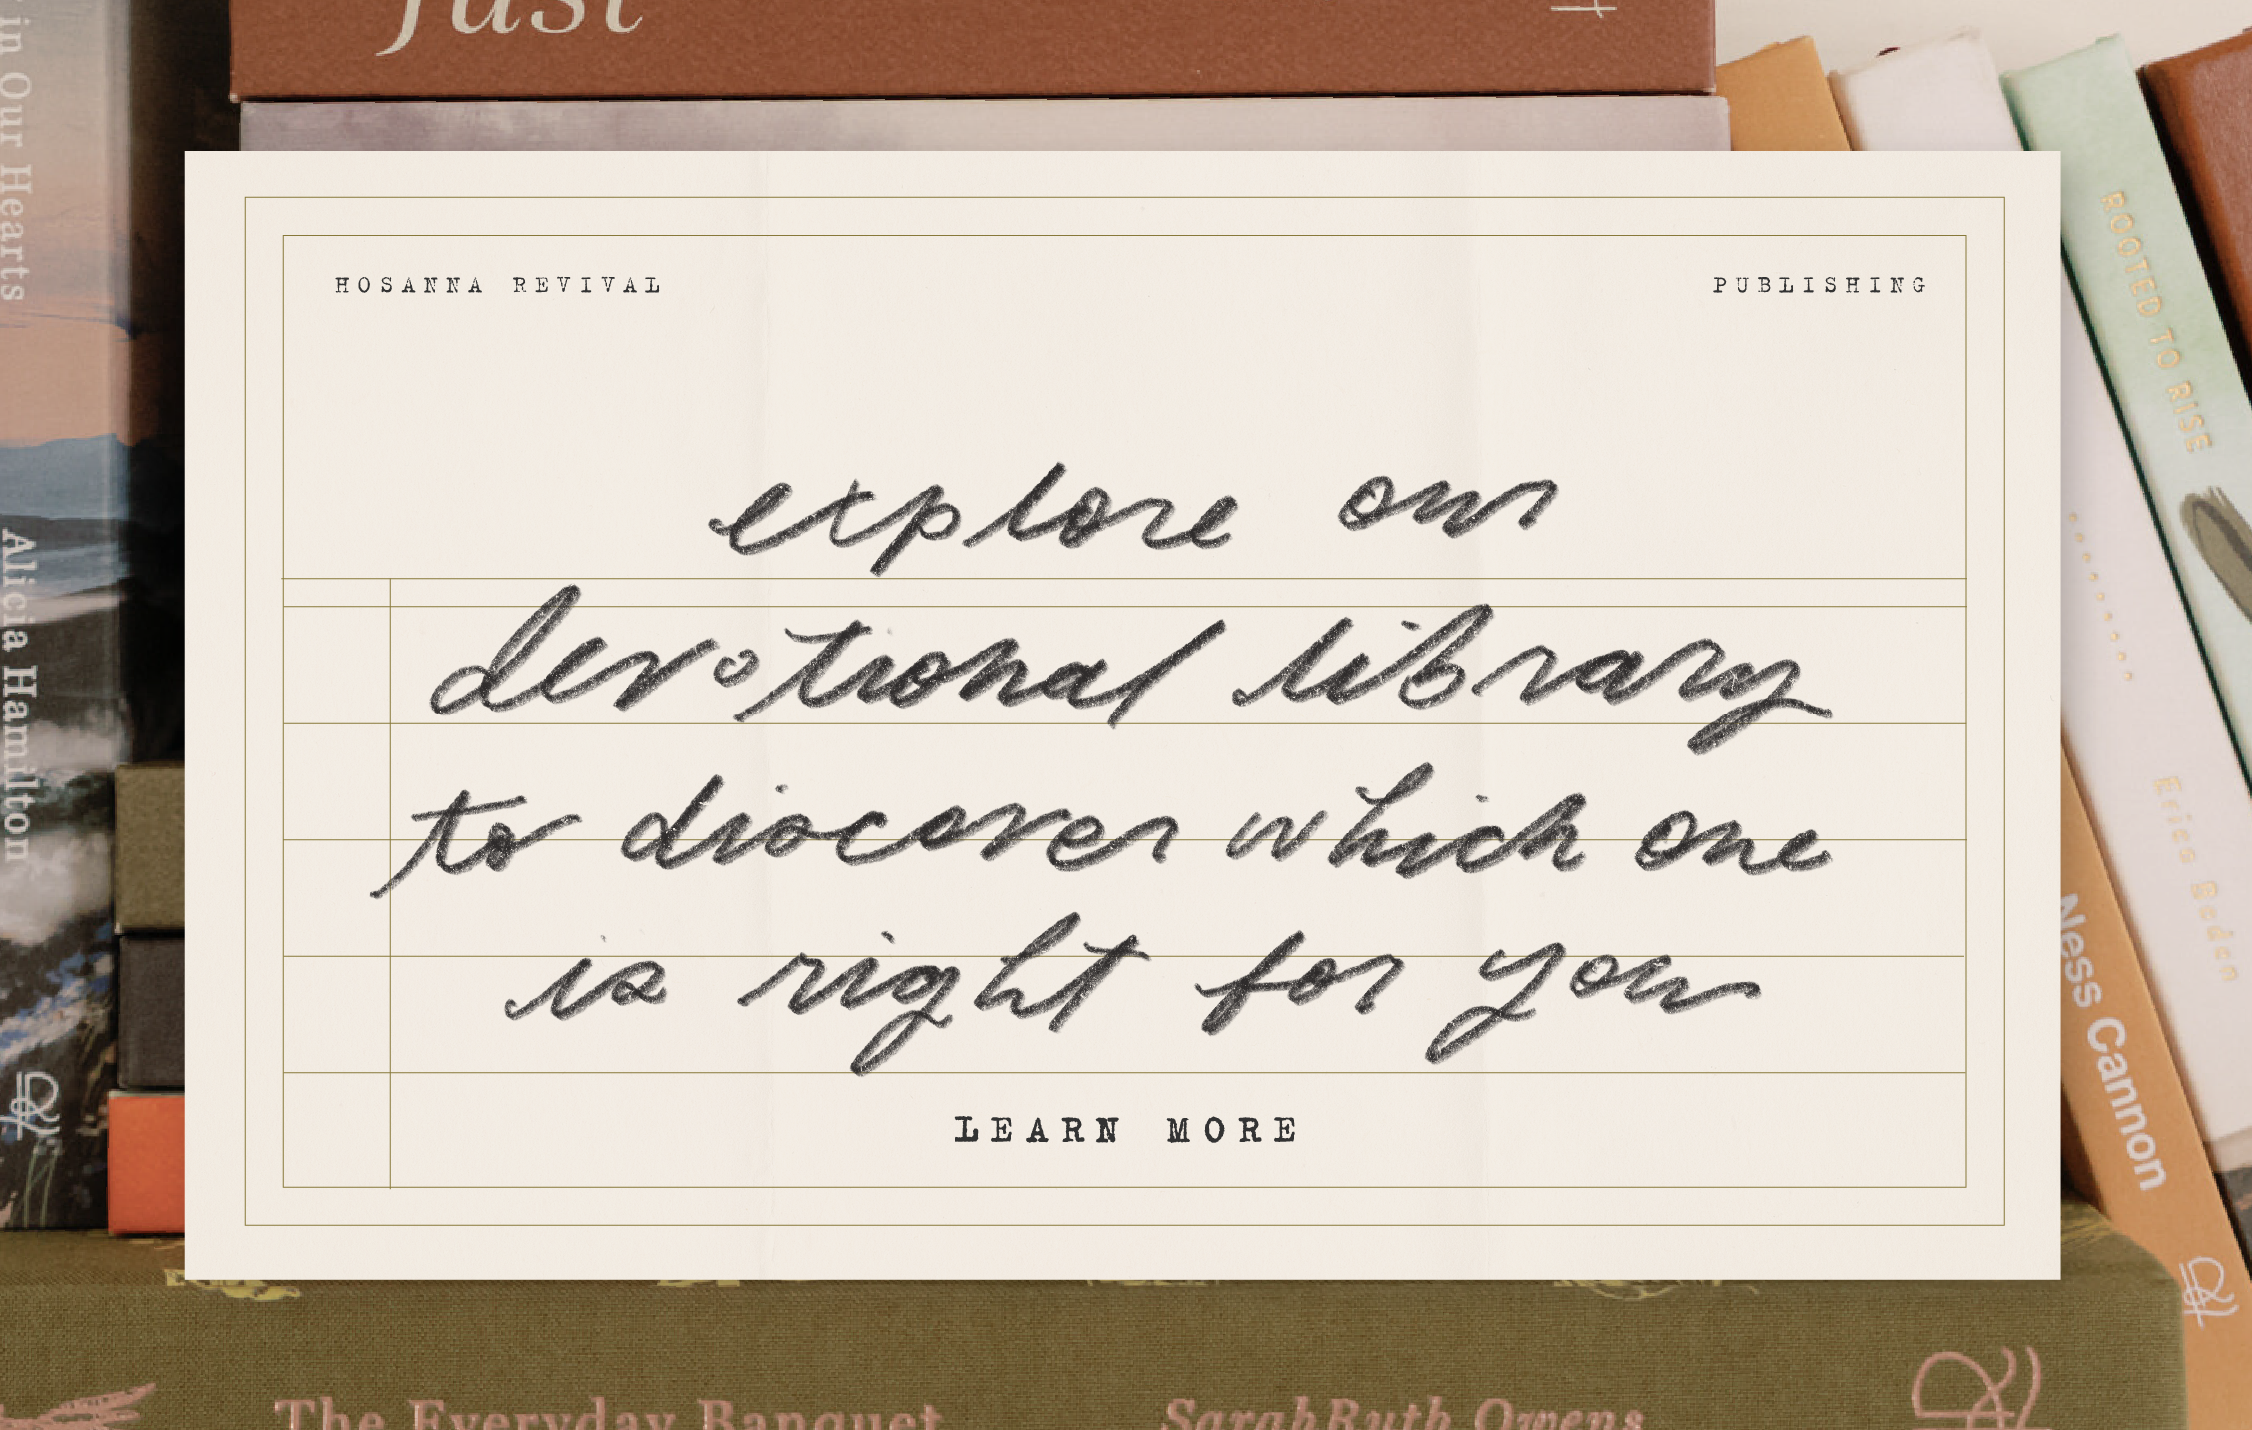 Just
in Our Hearts
Alicia Hamilton
HOSANNA REVIVAL
PUBLISHING
explore our
devotional library
to discover which one
is right for you
LEARN MORE
ROOTED TO RISE
Ness Cannon
The Everyday Banquet
SarahRuth Owens